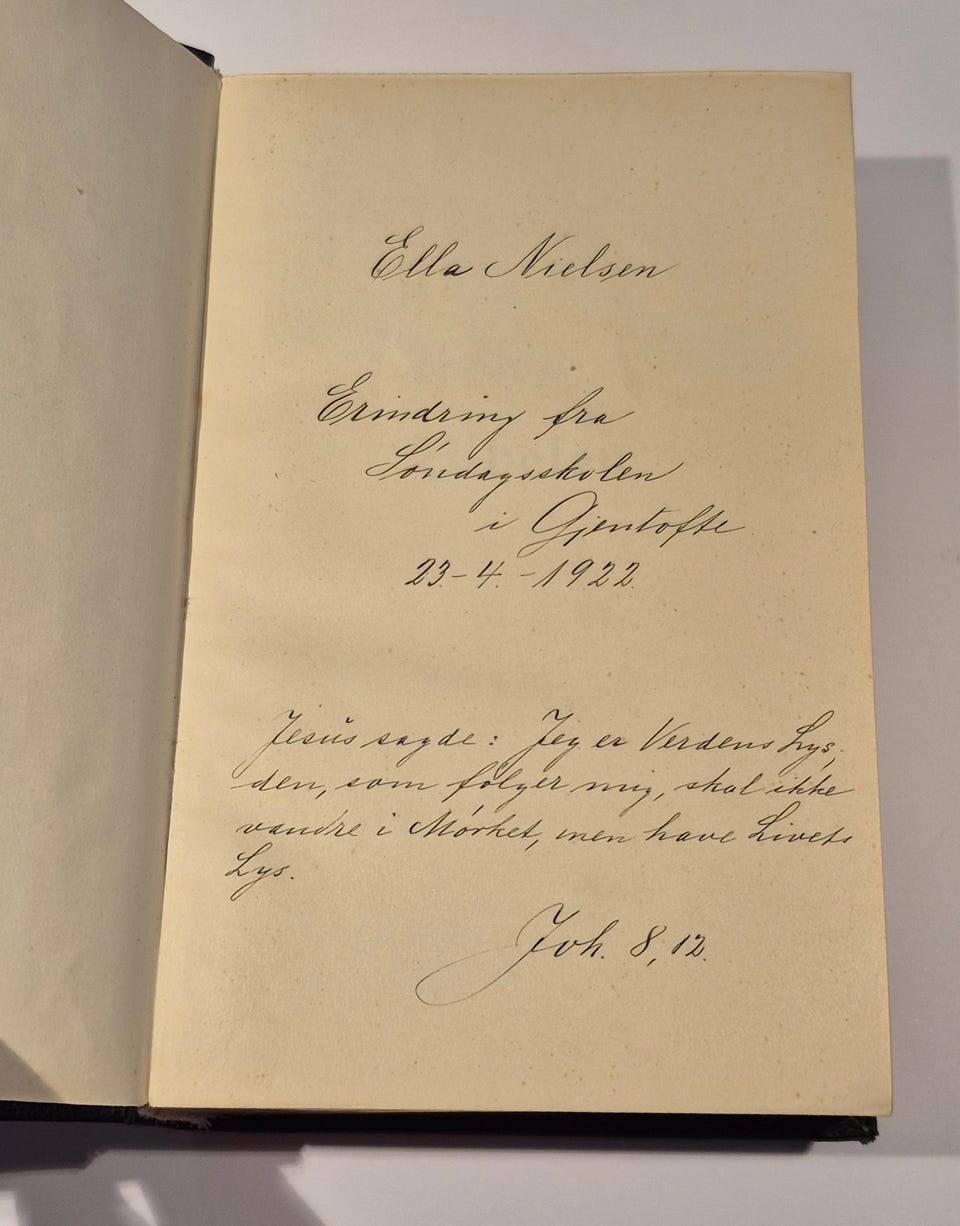 Ella Nielsen
Erindring fra
Søndagsskolen
i Gjentofte
23-4.-1922.
Jesus sagde: Jeg er Verdens Lys,
den, som følger mig, skal ikke
vandre i Mørket, men have Livets
Lys.
Joh. 8, 12.